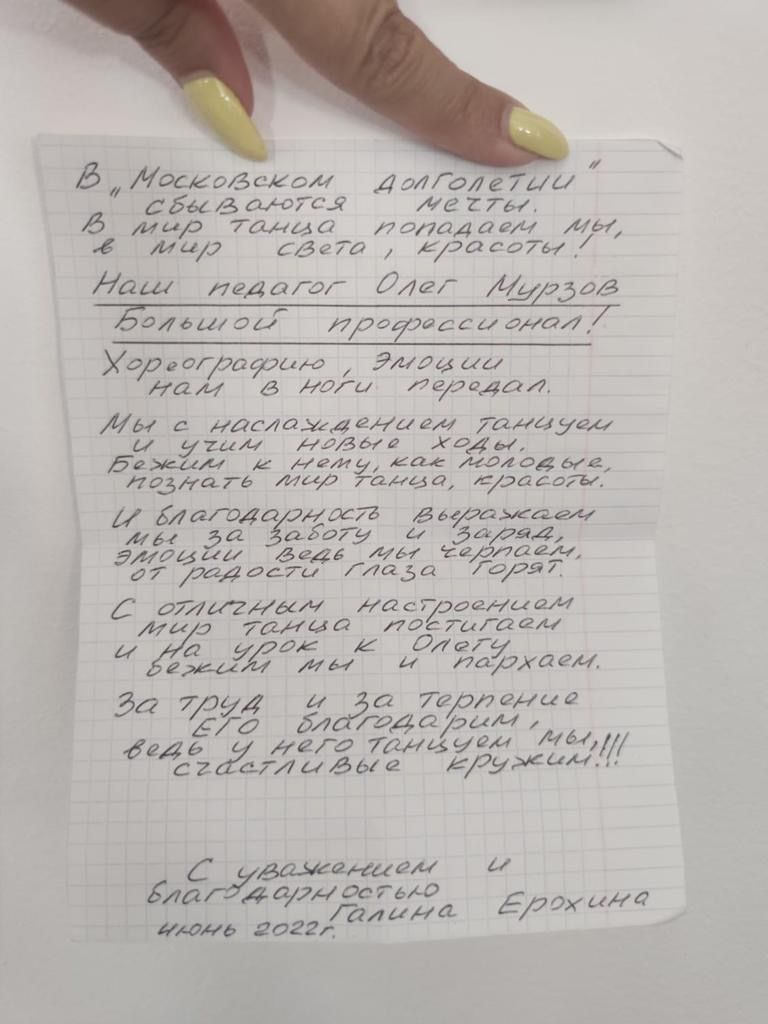 В „Московском долголетии"
сбываются мечты.
В мир танца попадаем мы,
в мир света, красоты!
Наш педагог Олег Мурзов
Большой профессионал!
Хореографию, эмоции
нам в ноги передал.
Мы с наслаждением танцуем
и учим новые ходы.
Бежим к нему, как молодые,
познать мир танца, красоты.
И благодарность выражаем
мы за заботу и заряд,
эмоции ведь мы черпаем,
от радости глаза горят.
С отличным настроением
мир танца постигаем
и на урок к Олегу
бежим мы и пархаем.
За труд и за терпение
ЕГО благодарим,
ведь у него танцуем мы,
счастливые кружим!!!
С уважением и
благодарностью
Галина Ерохина
июнь 2022г.